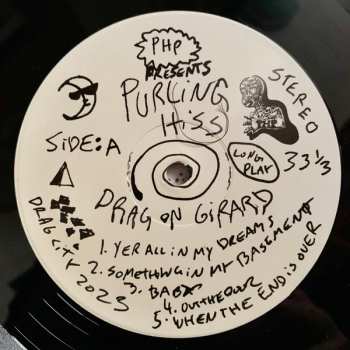 PHP
PRESENTS
PURLING
HiSS
STEREO
PHP
SiDE:A
LONG
PLAY
33 1/3
DRAG ON GiRARD
DRAG CiTY 2023
1. YER ALL iN MY DREAMS
2. SOMETHiNG iN MY BASEMENT
3. BABY
4. OUT THE DOOR
5. WHEN THE END iS OVER